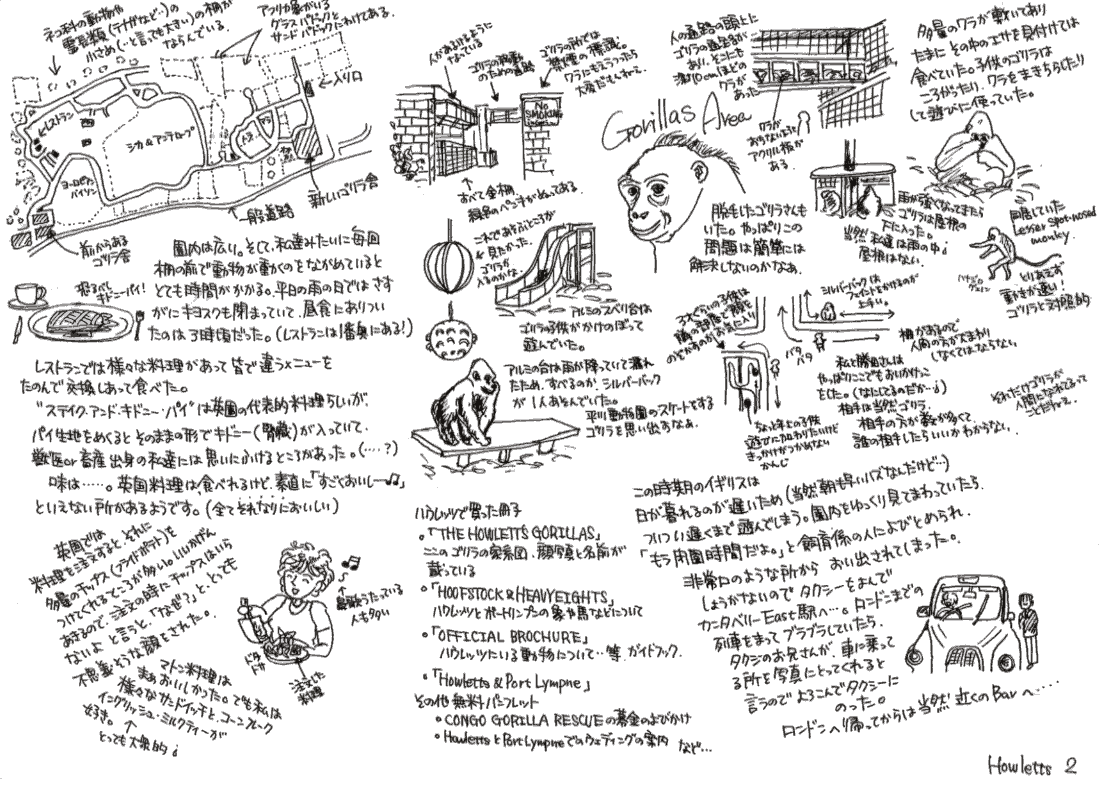 ネコ科の動物や
霊長類(テナガなど…)の
小さめ(…と言っても大きい)の柵が
ならんでいる
アフリカ象がいる
グラスパドックと
サンドパドックにわけてある。
入り口
レストラン
シカ&アンテロープ
ヨーロピアン
バイソン
一般道路
新しいゴリラ舎
前からある
ゴリラ舎
園内は広い。そして、私達みたいに毎回
柵の前で動物が動くのをながめていると
とても時間がかかる。平日の雨の日ではさす
がにキヨスクも閉まっていて、昼食にありつい
たのは3時頃だった。(レストランは1番奥にある!)
恐るべし
キドニーパイ!
レストランでは様々な料理があって皆で違うメニューを
たのんで交換しあって食べた。
"ステイク・アンド・キドニー・パイ"は英国の代表的料理らしいが、
パイ生地をめくるとそのままの形でキドニー(腎臓)が入っていて、
獣医or畜産出身の私達には思いにふけるところがあった。(…?)
味は……。英国料理は食べれるけど、素直に「すごくおいしー♫」
といえない所があるようです。(全てそれなりにおいしい)
英国では
料理を注文するとどれにも
多量のチップス(フライドポテト)を
つけてくれるところが多い。いいかげん
あきるので、注文の時にチップスはいら
ないよと言うと、「なぜ?」と、とても
不思議そうな顔をされた。
マトン料理は
まあおいしかった。でも私は
様々なサンドイッチと、コーンフレーク
イングリッシュ・ミルクティーが
好き。
とっても大衆的
鼻歌うたっている
人も多い
ドタ
ドタ
注文した
料理
人があるけるように
なっている
ゴリラの移動
のための通路
ゴリラの所では
禁煙の標識。
ワラにもえうつったら
大変だもんねぇ。
No
SMOKING
すべて金柵
緑色のペンキがぬってある。
これであそぶところが
見たかった。
ゴリラが
入るのかな。
アルミのスベリ台は
ゴリラの子供がかけのぼって
遊んでいた。
アルミの台は雨が降っていて濡れ
たため、すべるのか、シルバーバック
が1人あそんでいた。
平川動物園のスケートをする
ゴリラを思い出すなぁ。
Gorillas Area
人の通路の頭上に
ゴリラの通路が
あり、そこにも
深10cmほどの
ワラが
あった
ワラが
おちないように
アクリル板が
ある
脱毛したゴリラさんも
いた。やっぱりこの
問題は簡単には
解決しないのかなぁ。
雨が強くなってきたら
ゴリラは屋根の
下に入った。
当然私達は雨の中
屋根はない。
多量のワラが敷いてあり
たまにその中のエサを見付けては
食べていた。子供のゴリラは
ころがったり、ワラをまきちらしたり
して遊びに使っていた。
同居していた
Lesser Spot-nosed
monkey.
とりあえず
動きが速い!
ゴリラと対照的
シルバーバックは
フェイントをかけるのが
上手い。
パタ
パタ
柵があるので
人間の方が大まわり
しなくてはならない。
私と勝目さんは
やっぱりここでもおいかけっこ
をした。(なにしてるのだか…)
相手は当然ゴリラ。
相手の方が数が多くて
誰の相手したらいいかわからない。
それだけゴリラが
人間になれてるって
ことだねぇ。
ちょっと年上の子供
遊びに加わりたいけど
きっかけがつかめない
かんじ
ハウレッツで買った冊子
「THE HOWLETTS GORILLAS」
ここのゴリラの家系図、顔写真と名前が
載っている
「HOOFSTOCK & HEAVYEIGHTS」
ハウレッツとポートリンプンの象や馬などについて
「OFFICIAL BROCHURE」
ハウレッツにいる動物について…等、ガイドブック。
「Howletts & Port Lympne」
その他無料パンフレット
CONGO GORILLA RESCUEの募金のよびかけ
HowlettsとPort Lympneでのウェディングの案内 など…
この時期のイギリスは
日が暮れるのが遅いため(当然朝も早いハズなんだけど…)
ついつい遅くまで遊んでしまう。園内をゆっくり見てまわっていたら、
「もう閉園時間だよ。」と飼育係の人によびとめられ、
非常口のような所からおい出されてしまった。
しょうがないのでタクシーをよんで
カンタベリーEast駅へ…。ロンドンまでの
列車をまってブラブラしていたら、
タクシのお兄さんが、車に乗って
る所を写真にとってくれると
言うのでよろこんでタクシーに
のった。
ロンドンへ帰ってからは当然近くのBarへ……
Howletts 2